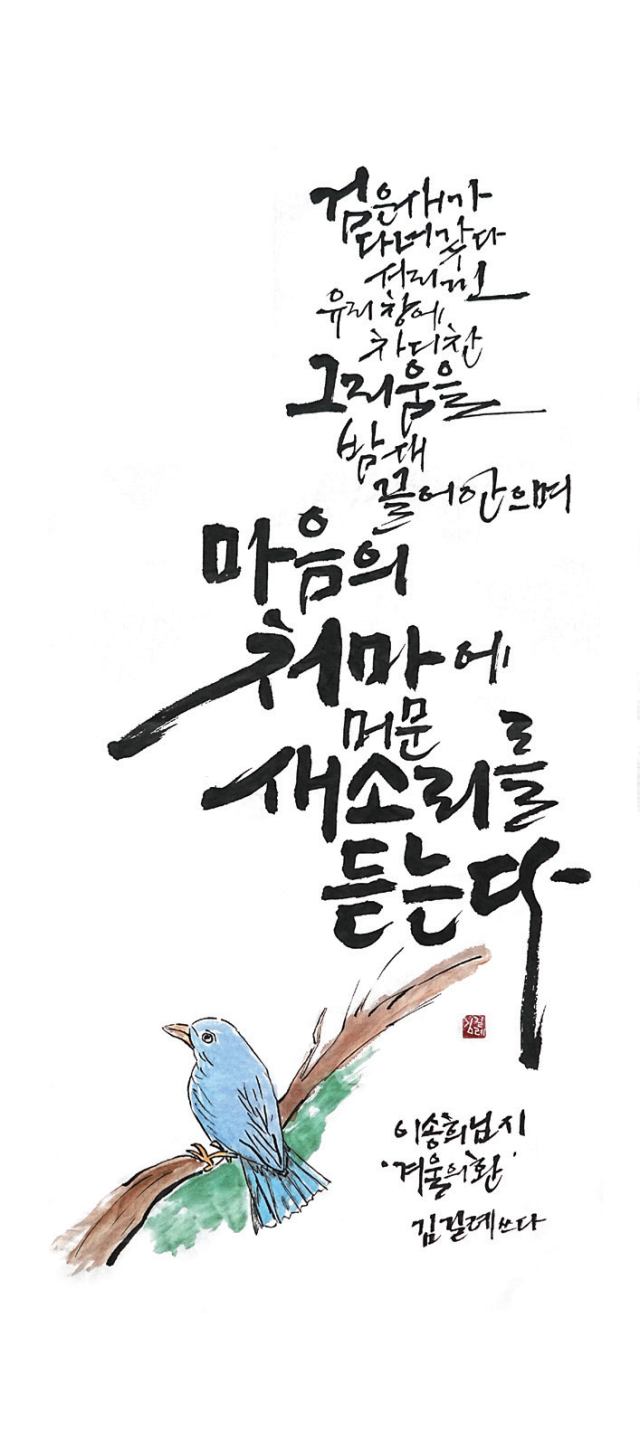 검은새가
다녀갔다
서리낀
유리창에
차디찬
그리움을
밤새
끌어안으며
마음의
처마에
머문
새소리를
듣는다
이송희님지
'겨울의환'
김길례쓰다
김길례